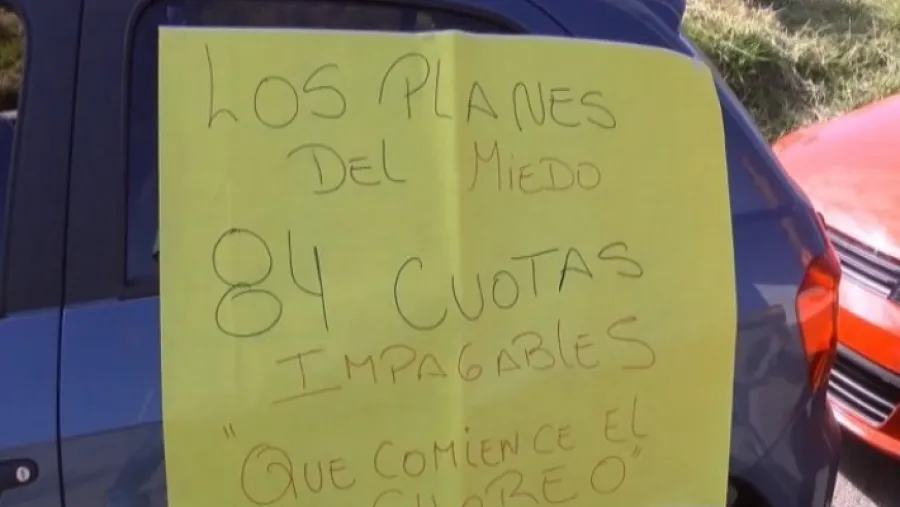 LOS PLANES
DEL MIEDO
84 CUOTAS
IMPAGABLES
"QUE COMIENCE EL
CHOREO"